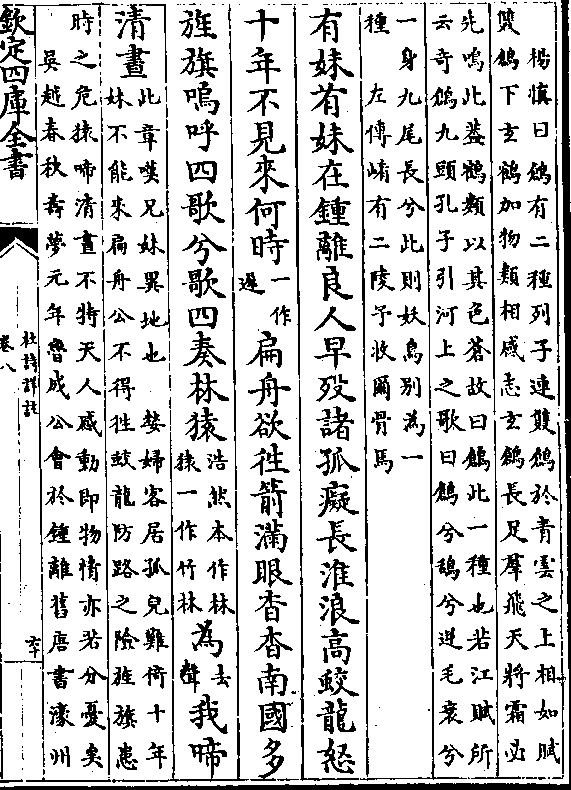 楊慎曰鶬有二種列子連雙鶬於青雲之上相如賦
雙鶬下玄鶴加物類相感志玄鶬長足羣飛天將霜必
先鳴此葢鶴類以其色蒼故曰鶬此一種也若江賦所
云奇鶬九頭孔子引河上之歌曰鶬兮鴰兮逆毛衰兮
一身九尾長兮此則妖鳥別為一
種 左傳崤有二陵予收爾骨焉
有妹有妹在鍾離良人早殁諸孤癡長淮浪高蛟龍怒
十年不見來何時一作遲扁舟欲往箭滿眼杳杳南國多
旌旗嗚呼四歌兮歌四奏林猿浩然本作林猿一作竹林為去聲我啼
清晝此章嘆兄妹異地也 嫠婦客居孤兒難倚十年
妹不能來扁舟公不得往蛟龍防路之險旌旗患
時之危猿啼清晝不特天人感動即物情亦若分憂矣
吳越春秋壽夢元年魯成公會於鍾離舊唐書濠州
欽定四庫全書
杜詩詳註
卷八
六十